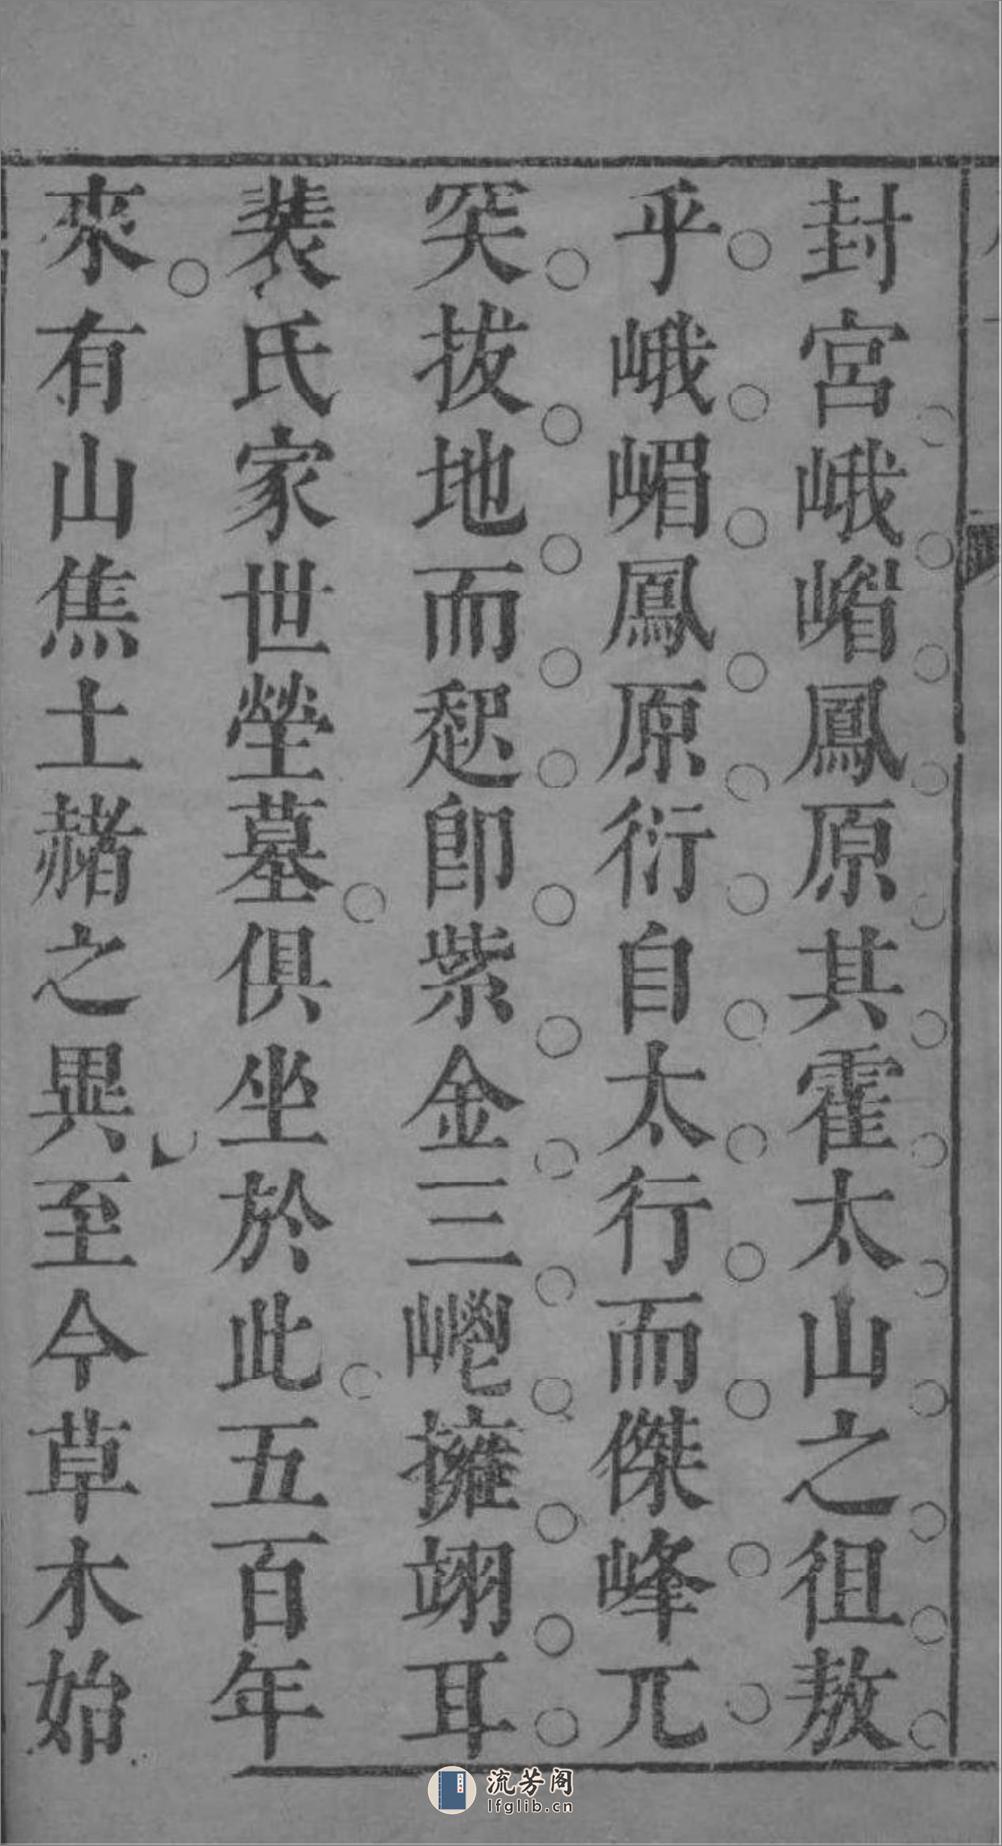 封宮峨嵋鳳原其霍太山之徂敖
乎峨嵋鳳原衍自太行而傑峰兀
突拔地而起卽紫金三擁翊耳
裴氏家世塋墓俱坐於此五百年
來有山焦土赭之異至今草木始
流芳阁
lfglib.cn